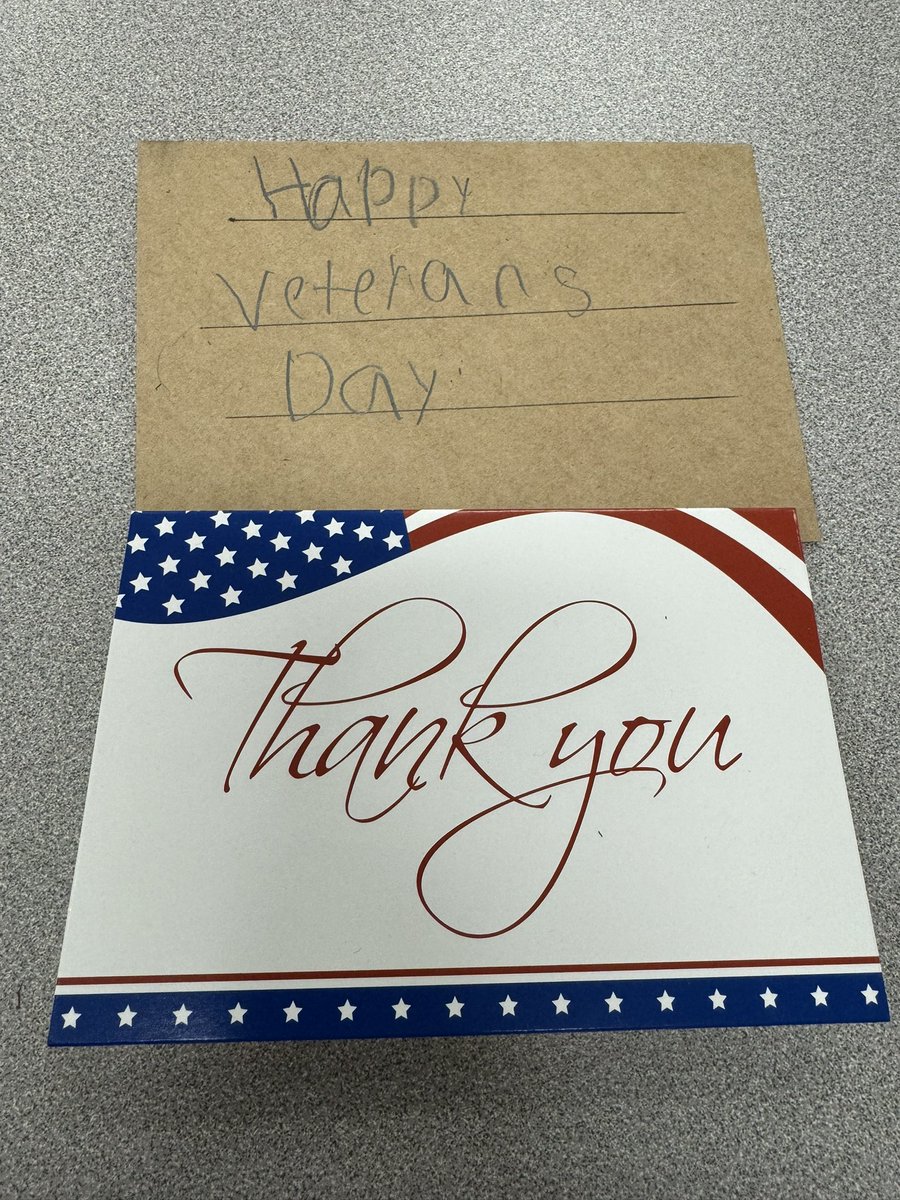 Happy
Veterans
Day
Thank you